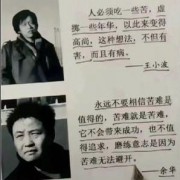 人必须吃一些苦，虚
掷一些年华，以此来变得
高尚，这种想法，不但有
害，而且有病。
——王小波
永远不要相信苦难是
值得的，苦难就是苦难，
它不会带来成功，也不值
得追求，磨练意志是因为
苦难无法避开。
——余华